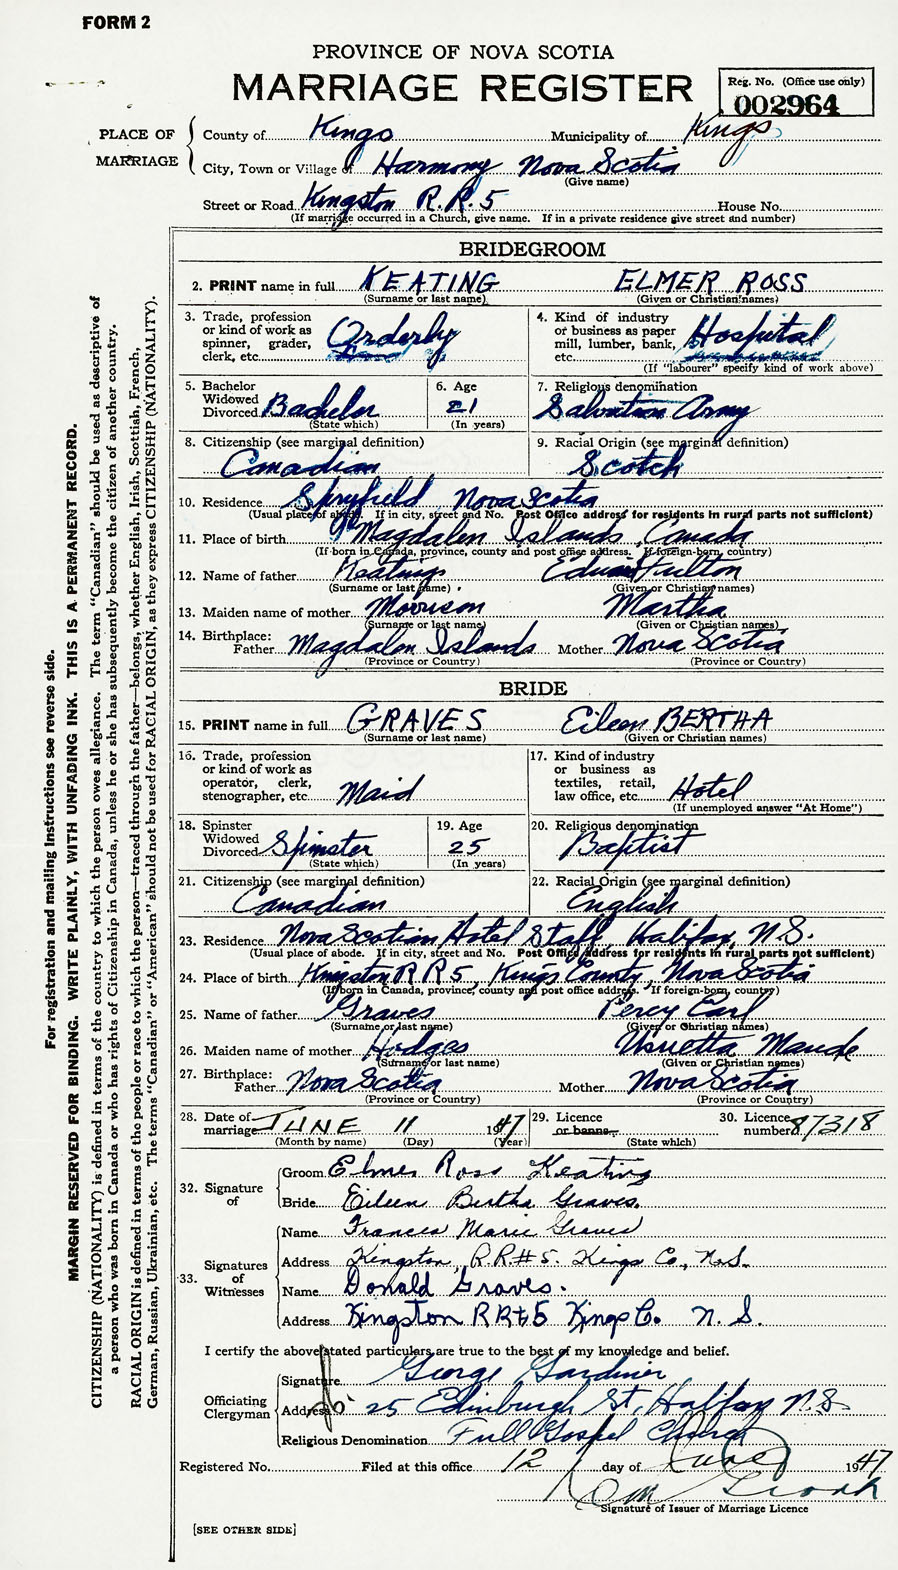 FORM 2
PROVINCE OF NOVA SCOTIA
MARRIAGE REGISTER
Reg. No. (Office use only)
002964
PLACE OF MARRIAGE
County of Kings Municipality of Kings
City, Town or Village of Harmony Nova Scotia
(Give name)
Street or Road Kingston R.R.5 House No.
(If marriage occurred in a Church, give name. If in a private residence give street and number)
BRIDEGROOM
2. PRINT name in full KEATING ELMER ROSS
(Surname or last name) (Given or Christian names)
3. Trade, profession or kind of work as spinner, grader, clerk, etc. Orderly
4. Kind of industry or business as paper mill, lumber, bank, etc. Hospital
(If "labourer" specify kind of work above)
5. Bachelor Widowed Divorced Bachelor
(State which)
6. Age 21
(In years)
7. Religious denomination
Salvation Army
8. Citizenship (see marginal definition)
Canadian
9. Racial Origin (see marginal definition)
Scotch
10. Residence Spryfield Nova Scotia
(Usual place of abode. If in city, street and No. Post Office address for residents in rural parts not sufficient)
11. Place of birth Magdalen Islands, Canada
(If born in Canada, province, county and post office address. If foreign-born, country)
12. Name of father Keating Fulton
(Surname or last name) (Given or Christian names)
13. Maiden name of mother Morrison Martha
(Surname or last name) (Given or Christian names)
14. Birthplace:
Father Magdalen Islands Mother Nova Scotia
(Province or Country) (Province or Country)
BRIDE
15. PRINT name in full GRAVES Eileen BERTHA
(Surname or last name) (Given or Christian names)
16. Trade, profession or kind of work as operator, clerk, stenographer, etc. Maid
17. Kind of industry or business as textiles, retail, law office, etc. Hotel
(If unemployed answer "At Home")
18. Spinster Widowed Divorced Spinster
(State which)
19. Age 25
(In years)
20. Religious denomination
Baptist
21. Citizenship (see marginal definition)
Canadian
22. Racial Origin (see marginal definition)
English
23. Residence Nova Scotian Hotel Staff, Halifax, N.S.
(Usual place of abode. If in city, street and No. Post Office Address for residents in rural parts not sufficient)
24. Place of birth Kingston R R 5, Kings County, Nova Scotia
(If born in Canada, province, county and post office address. If foreign-born, country)
25. Name of father Graves Percy Earl
(Surname or last name) (Given or Christian names)
26. Maiden name of mother Hodges Maude
(Surname or last name) (Given or Christian names)
27. Birthplace:
Father Nova Scotia Mother Nova Scotia
(Province or Country) (Province or Country)
28. Date of marriage JUNE 11 1947
(Month by name) (Day) (Year)
29. Licence or banns
(State which)
30. Licence number 87318
32. Signature of
Groom Elmer Ross Keating
Bride Eileen Bertha Graves.
33. Signatures of Witnesses
Name Frances Marie Graves
Address Kingston, R.R#5. Kings Co., N.S.
Name Donald Graves.
Address Kingston RR#5 Kings Co. N. S.
I certify the above stated particulars are true to the best of my knowledge and belief.
Officiating Clergyman
Signature George Gardiner
Address 25 Edinburgh St, Halifax N.S.
Religious Denomination Full Gospel Church
Registered No. Filed at this office 12 day of June 1947
Signature of Issuer of Marriage Licence
[SEE OTHER SIDE]
For registration and mailing Instructions see reverse side.
MARGIN RESERVED FOR BINDING. WRITE PLAINLY, WITH UNFADING INK. THIS IS A PERMANENT RECORD.
CITIZENSHIP (NATIONALITY) is defined in terms of the country to which the person owes allegiance. The term "Canadian" should be used as descriptive of
a person who was born in Canada or who has rights of Citizenship in Canada, unless he or she has subsequently become the citizen of another country.
RACIAL ORIGIN is defined in terms of the people or race to which the person—traced through the father—belongs, whether English, Irish, Scottish, French,
German, Russian, Ukrainian, etc. The terms "Canadian" or "American" should not be used for RACIAL ORIGIN, as they express CITIZENSHIP (NATIONALITY).